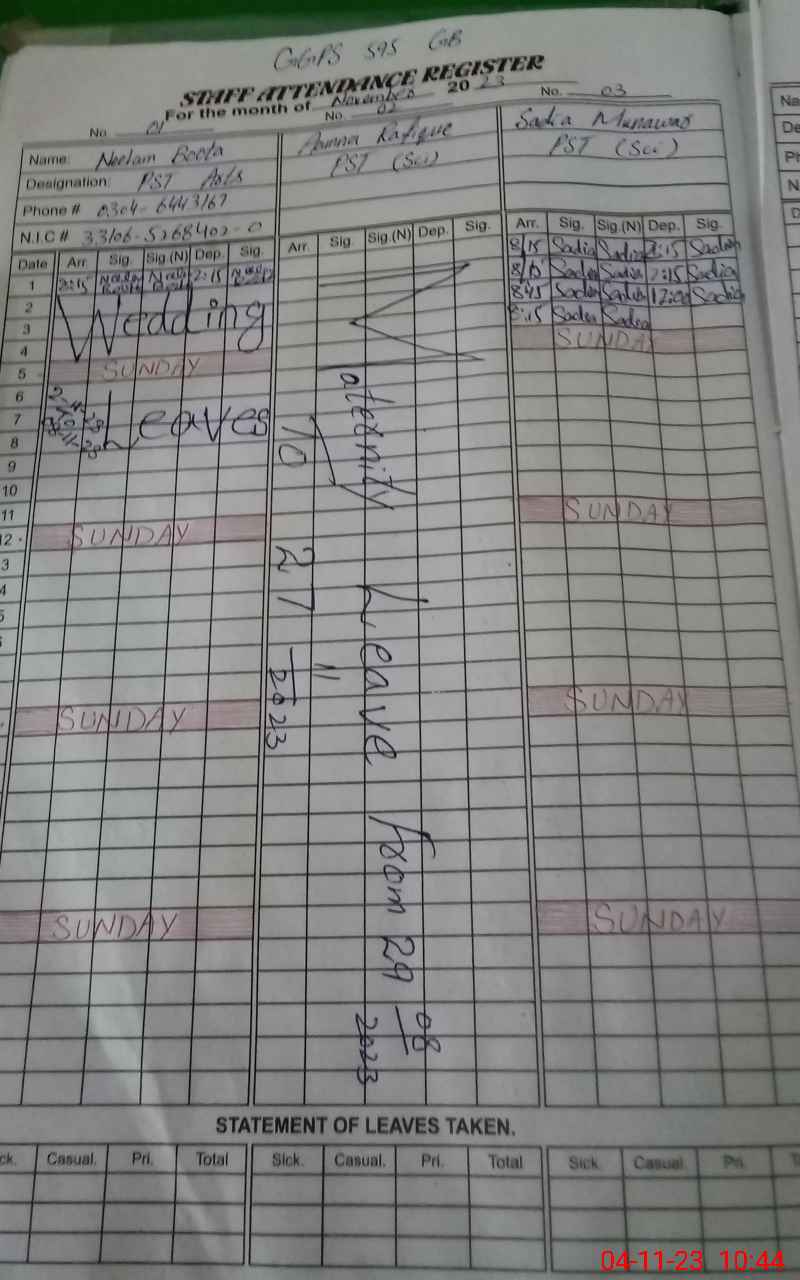 GGPS 595 GB
STAFF ATTENDANCE REGISTER
For the month of November 2023
No. 01
No. 02
No. 03
Name: Neelam Boota
Designation: PST Arts
Phone # 0304-6443167
N.I.C # 33106-5268402-0
Aamna Rafique
PST (Sci)
Sadia Munawar
PST (Sci)
Date Arr. Sig. Sig.(N) Dep. Sig.
Arr. Sig. Sig.(N) Dep. Sig.
Arr. Sig. Sig.(N) Dep. Sig.
8/15 Sadia Sadia 2:15 Sadia
8/15 Sadia Sadia 2:15 Sadia
8:45 Sadia Sadia 12:00 Sadia
8:15 Sadia Sadia
SUNDAY
1 2:15
2
3
4
5
6
7
8
9
10
11
12
3
4
5
Wedding
SUNDAY
Leaves
SUNDAY
SUNDAY
SUNDAY
Maternity Leave from 29 08 2023
To 27 11 2023
SUNDAY
SUNDAY
SUNDAY
STATEMENT OF LEAVES TAKEN.
ck. Casual. Pri. Total
Sick. Casual. Pri. Total
Sick. Casual. Pri. T
04-11-23 10:44